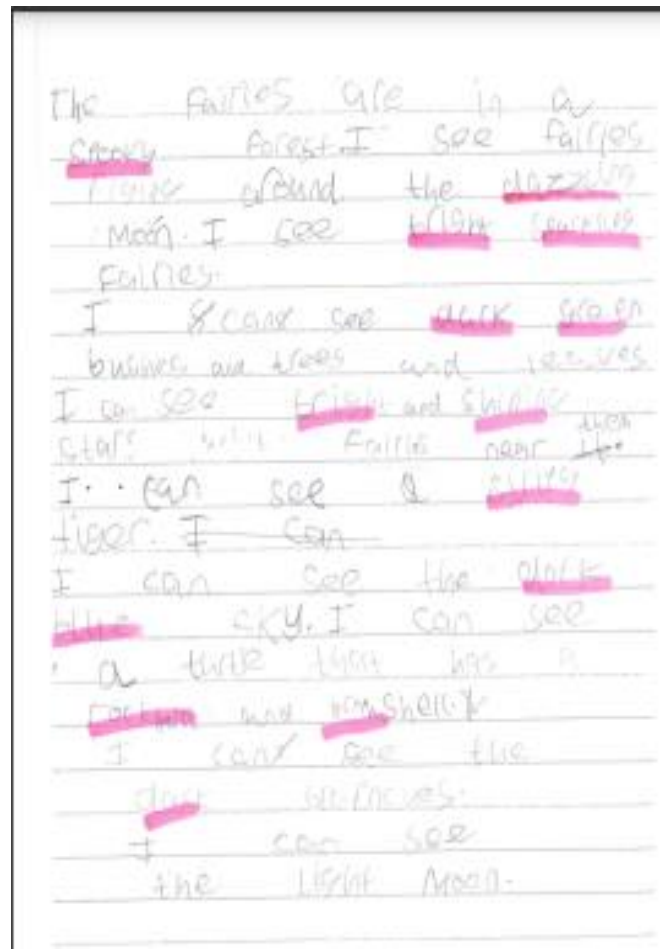 The fairies are in a
spooky forest. I see fairies
around the dazzling
Moon. I see bright sparkling
fairies.
I can see dark green
bushes and trees and leaves
I can see bright and shining
stars fairies near them
I can see a stripy
tiger. I can
I can see the dark
blue sky. I can see
a turtle that has a
and shell.
I can see the
dark
I can see
the Light Moon.